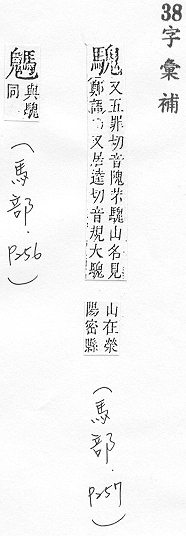 38字彙補
騩
又五罪切音隗芣騩山名見
鄭語又居逵切音規大騩
山在滎
陽密縣
(馬部.P257)
與騩
同
(馬部.P256)